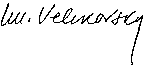 Im. Velikovsky